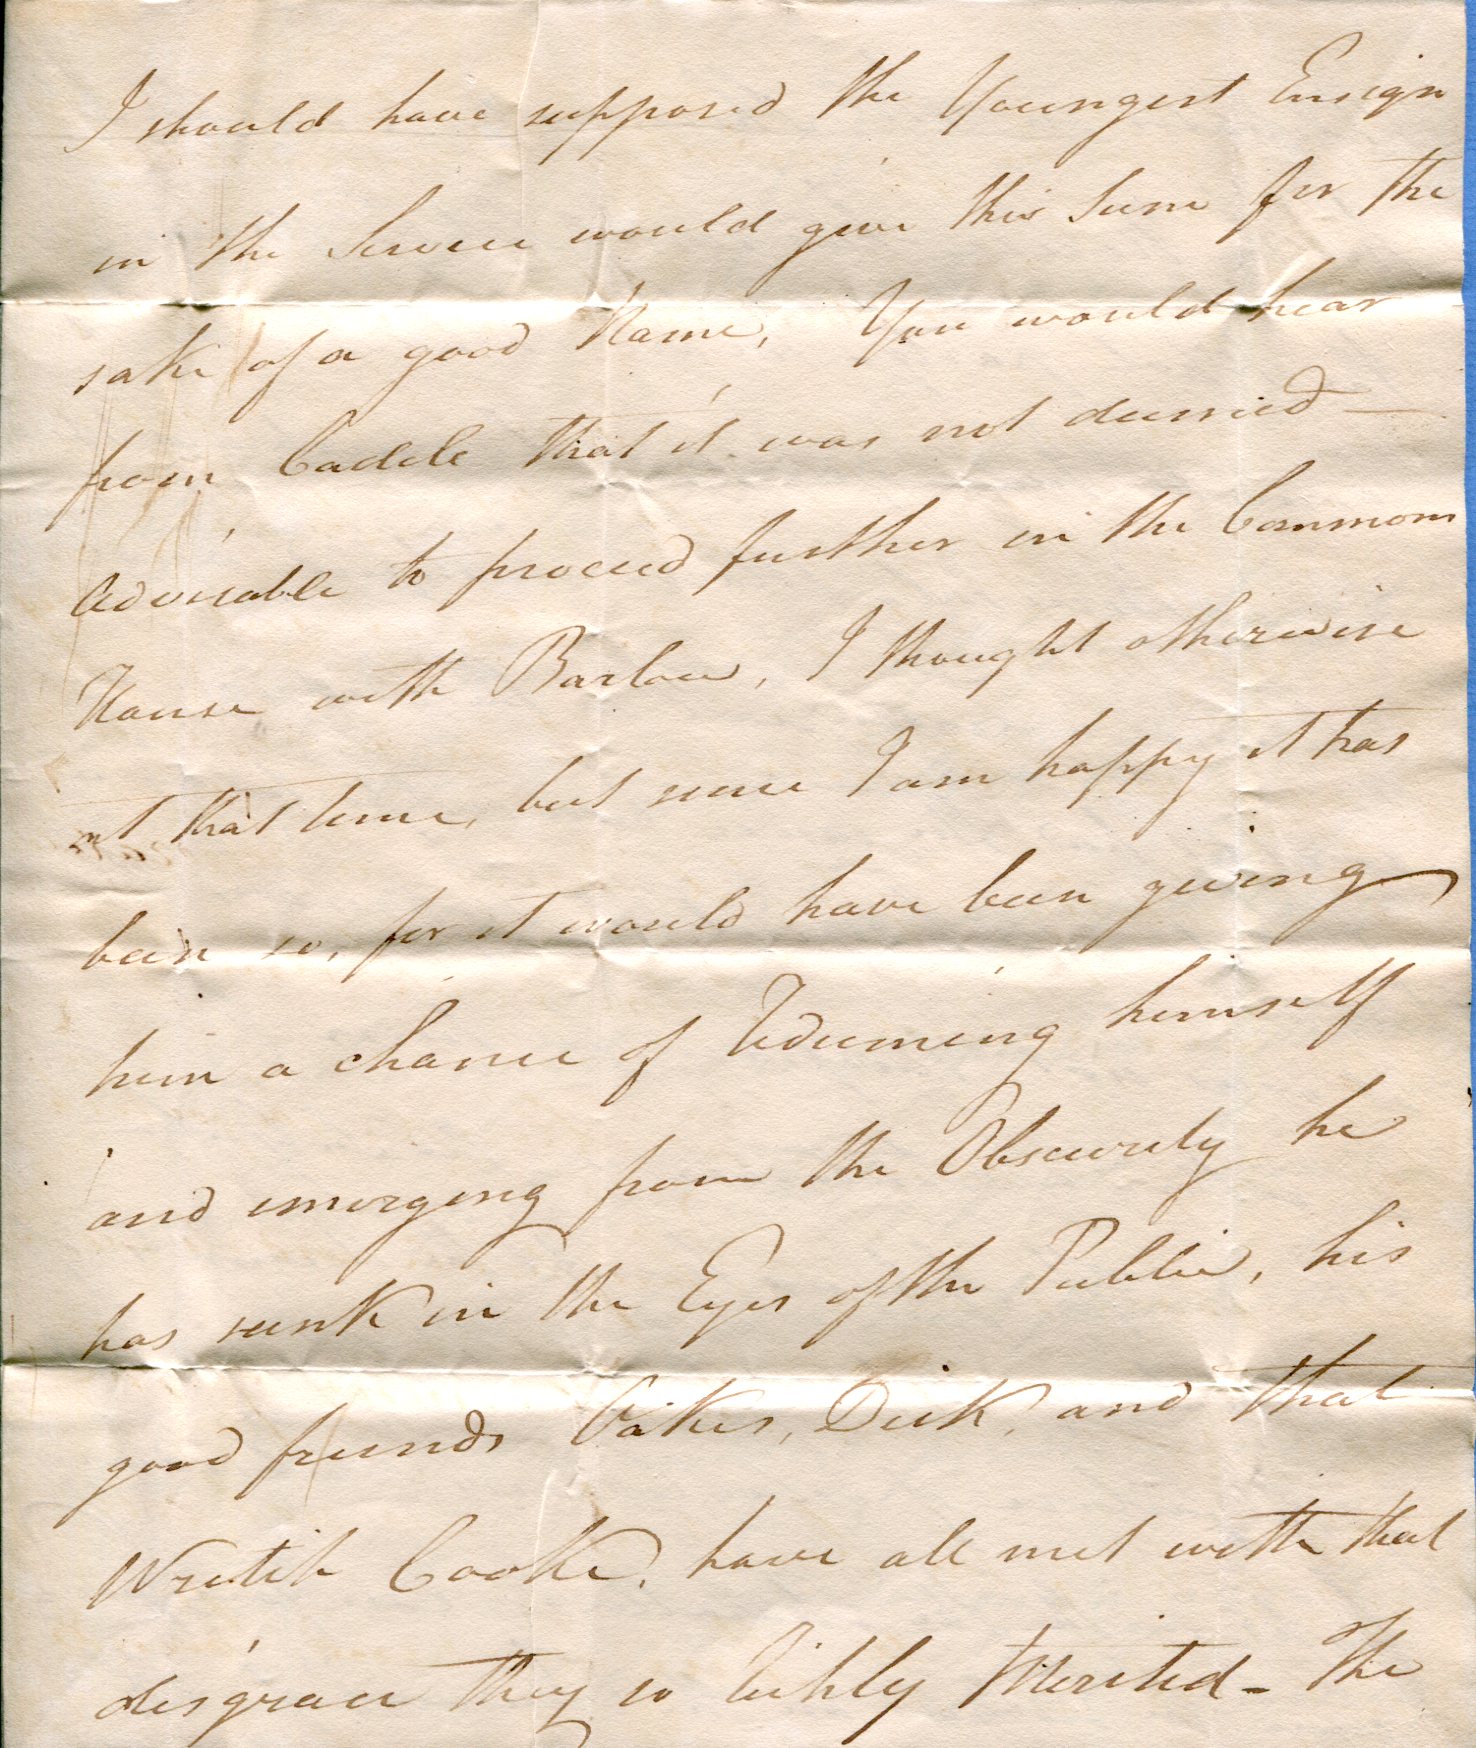 I should have supposed the Youngest Ensign
in the Service would give this Sum for the
sake of a good Name, You would hear
from Cadele that it was not deemed —
Advisable to proceed further in the Commons
House with Barlow, I thought otherwise
at that time, but since I am happy it has
been so, for it would have been giving
him a chance of Redeeming himself
and emerging from the Obscurity he
has sunk in the Eyes of the Public, his
good friends Oakes, Dick, and that
Wretch Cooke, have all met with that
disgrace they so Richly Merited - The